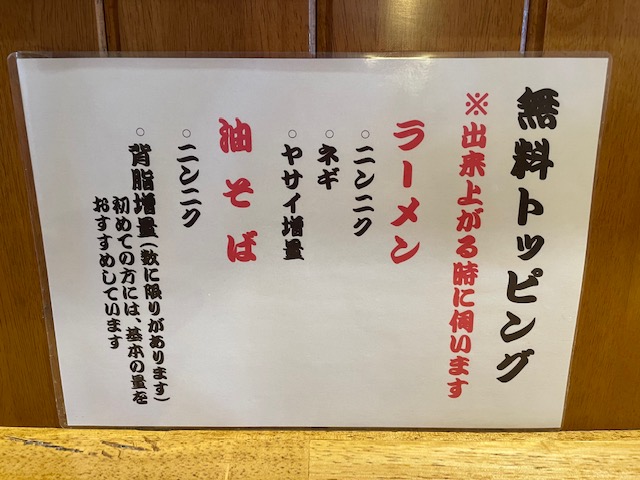 無料トッピング
※出来上がる時に伺います
ラーメン
○ニンニク
○ネギ
○ヤサイ増量
油そば
○ニンニク
○背脂増量(数に限りがあります)
初めての方には、基本の量を
おすすめしています